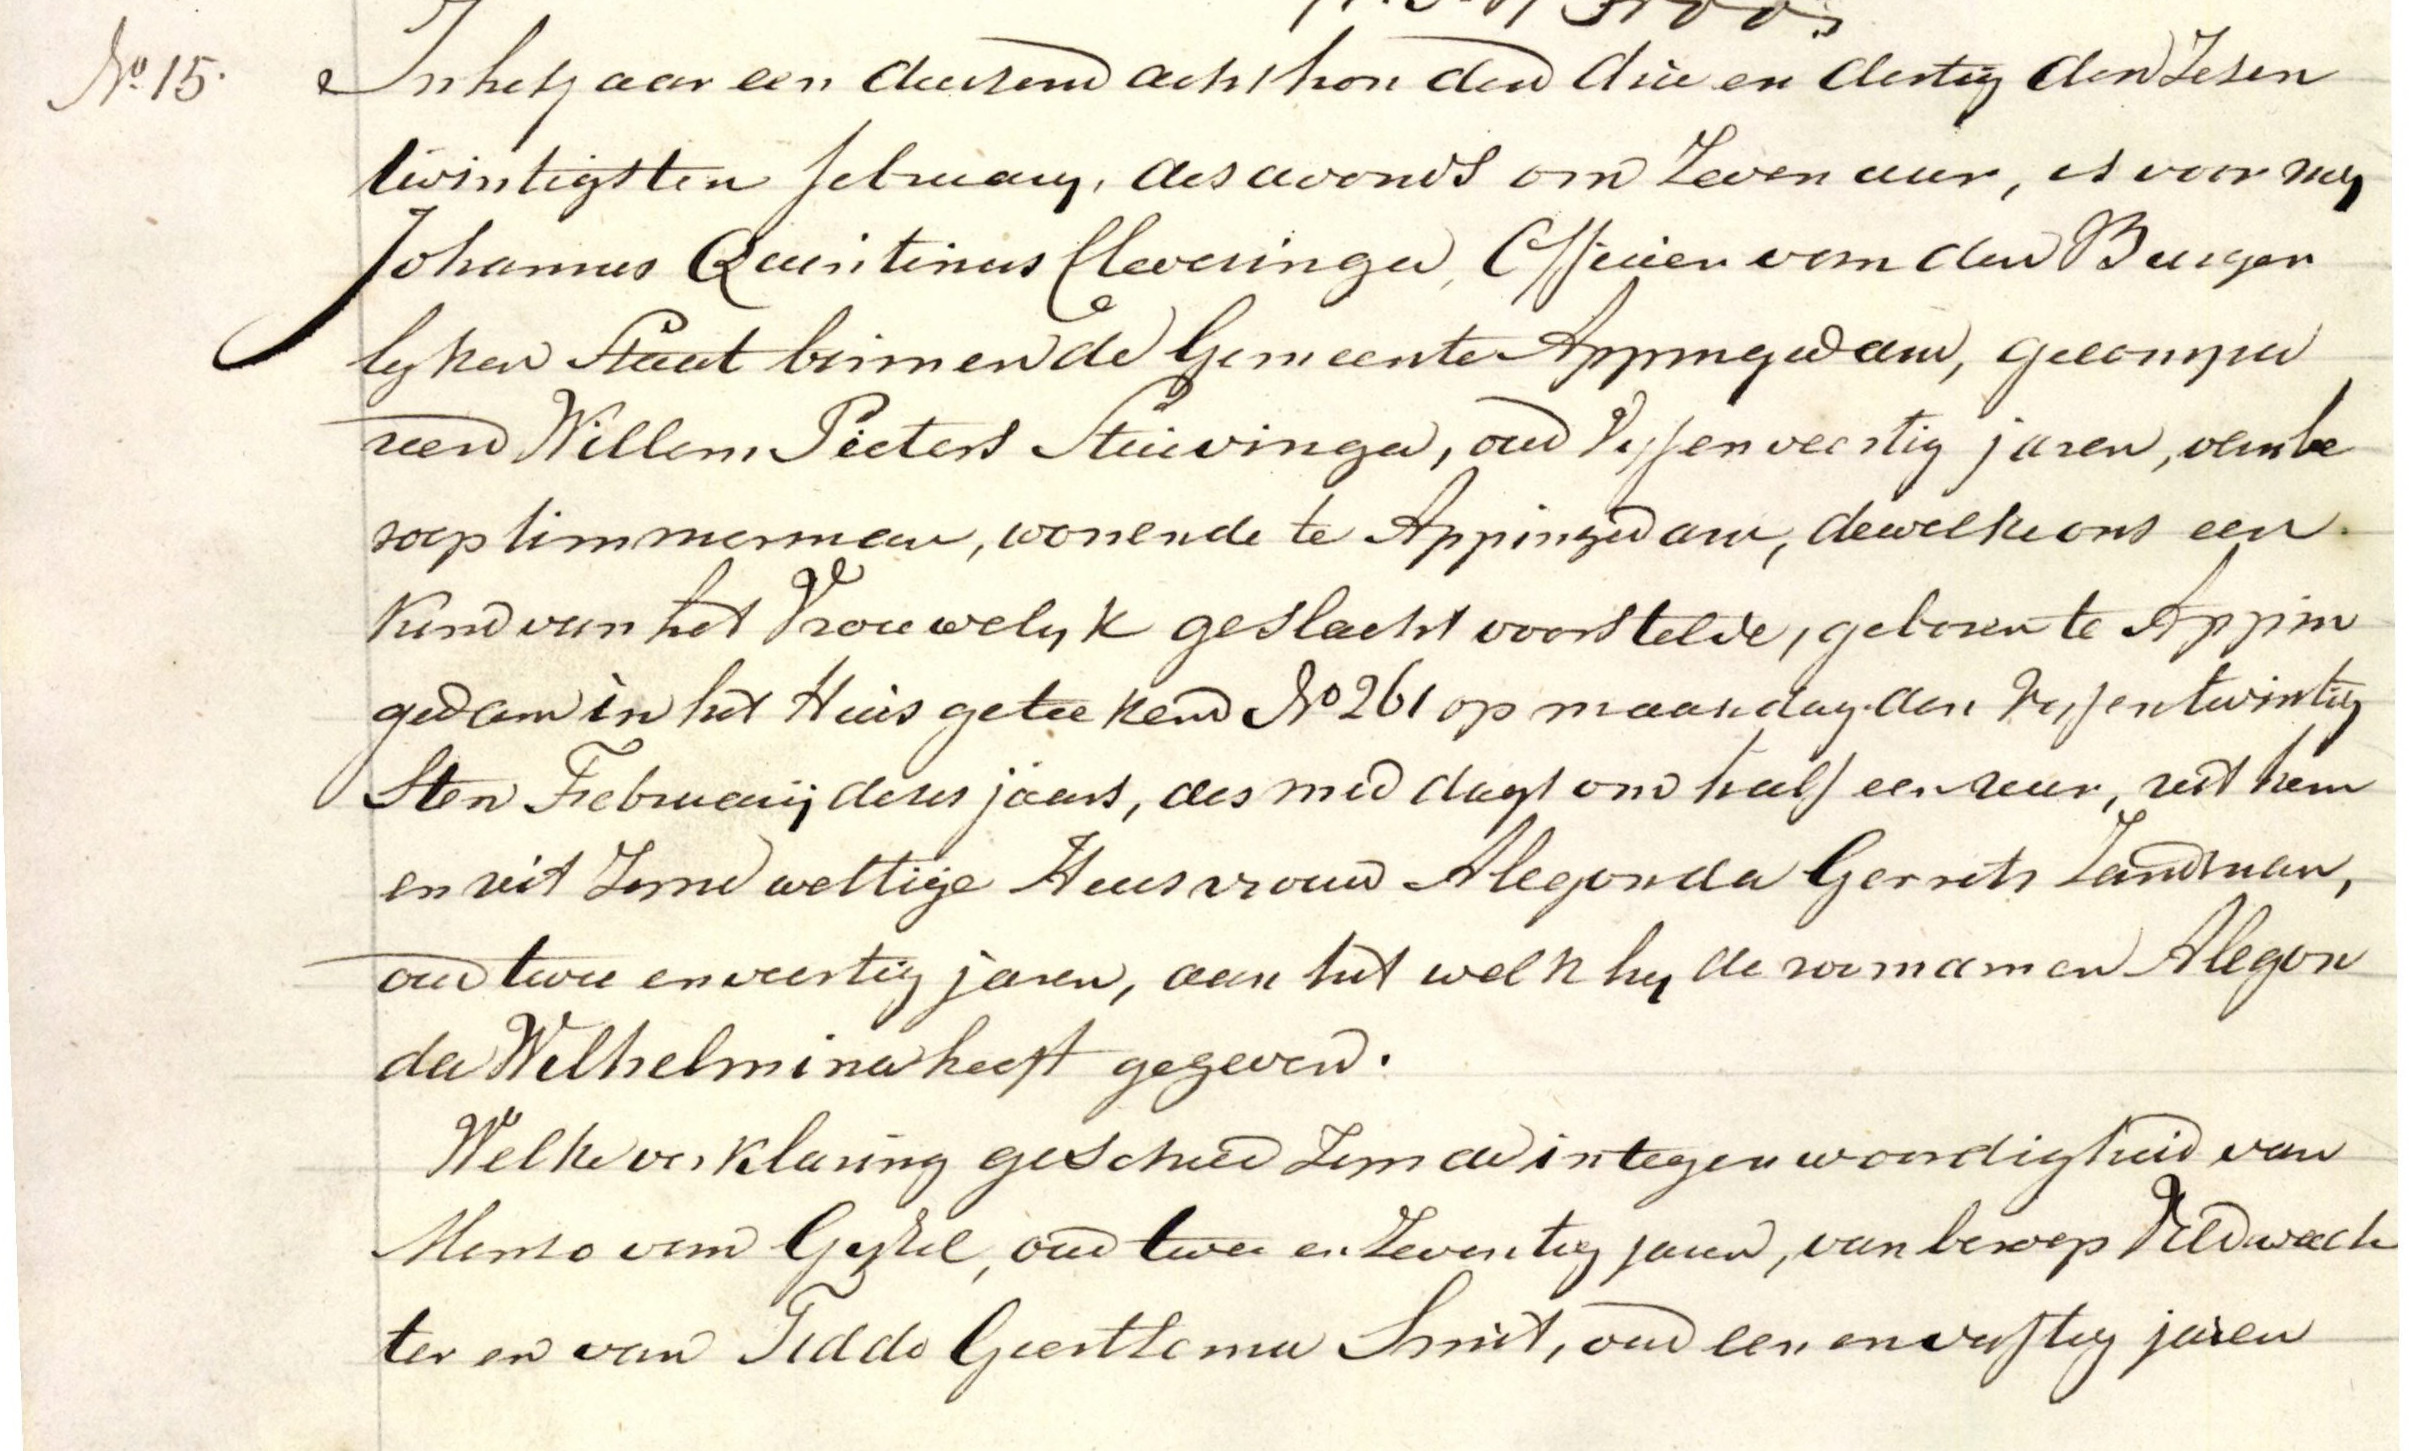 No 15.
In het jaar een duizend acht honderd drie en dertig den Zesen
twintigsten february, des avonds om Zeven uur, is voor my
Johannes Quintinus Cleveringa, Officier van den Burger
lyken Staat binnen de Gemeente Appingedam, gecompa
reerd Willem Pieters Stuivinga, oud Vyf en veertig jaren, van be
roep timmerman, wonende te Appingedam, dewelke ons een
Kind van het Vrouwelyk geslacht voorstelde, geboren te Appin
gedam in het Huis geteekend No 261 op maandag den Vyf en twintig
sten February dezes jaars, des middags om half een uur, uit hem
en uit Zyne wettige Huisvrouw Alegonda Gerrits Zandman,
oud twee en veertig jaren, aan het welk hy de voornamen Alegon
da Wilhelmina heeft gegeven.
Welke verklaring geschied Zynde in tegenwoordigheid van
Menso van Gyzel, oud twee en Zeventig jaren, van beroep Veldwach
ter en van Fiddo Geertsema Smit, oud een en vyftig jaren